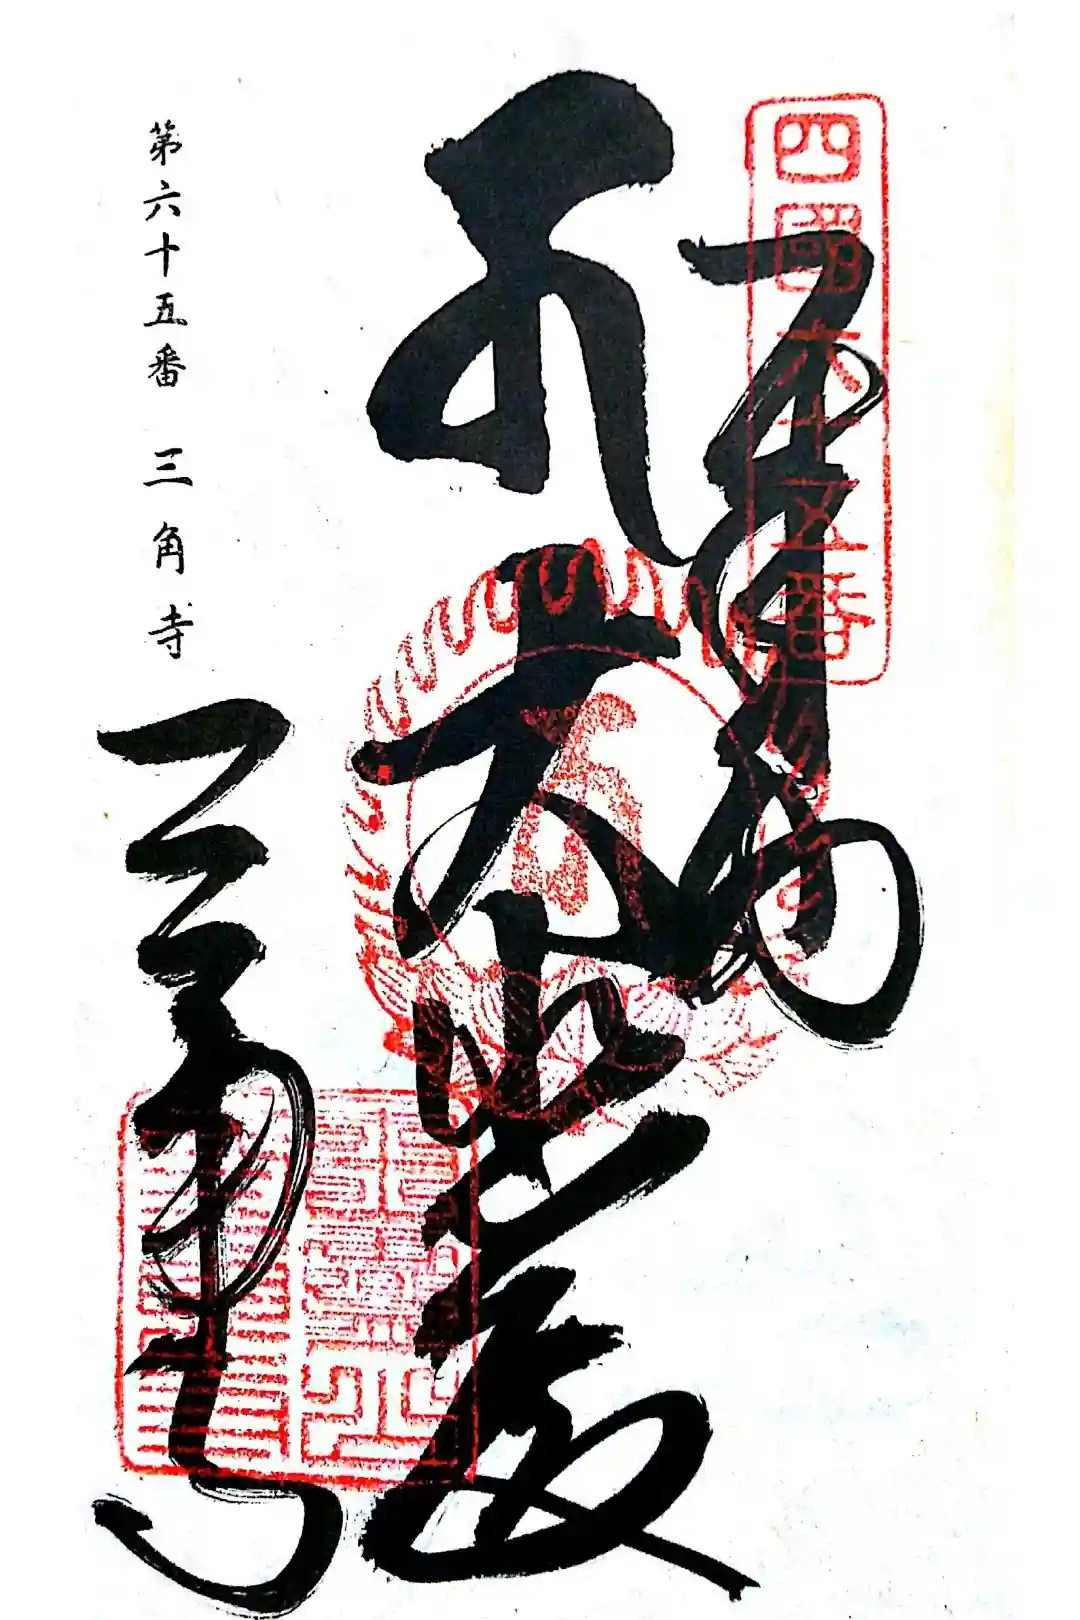 四國六十五番
奉納
大悲殿
第六十五番 三角寺
三角寺